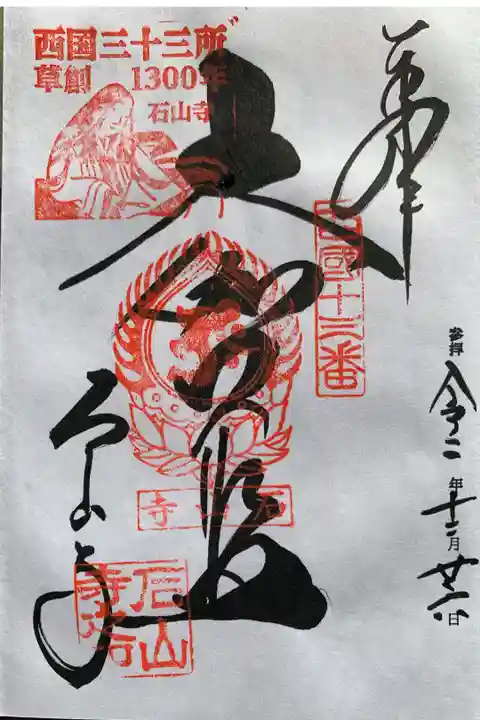 奉拝
西國十三番
参拝 令和二年十二月廿六日
西国三十三所
草創 1300年
石山寺
大伽藍
石山寺
石山寺
石山寺